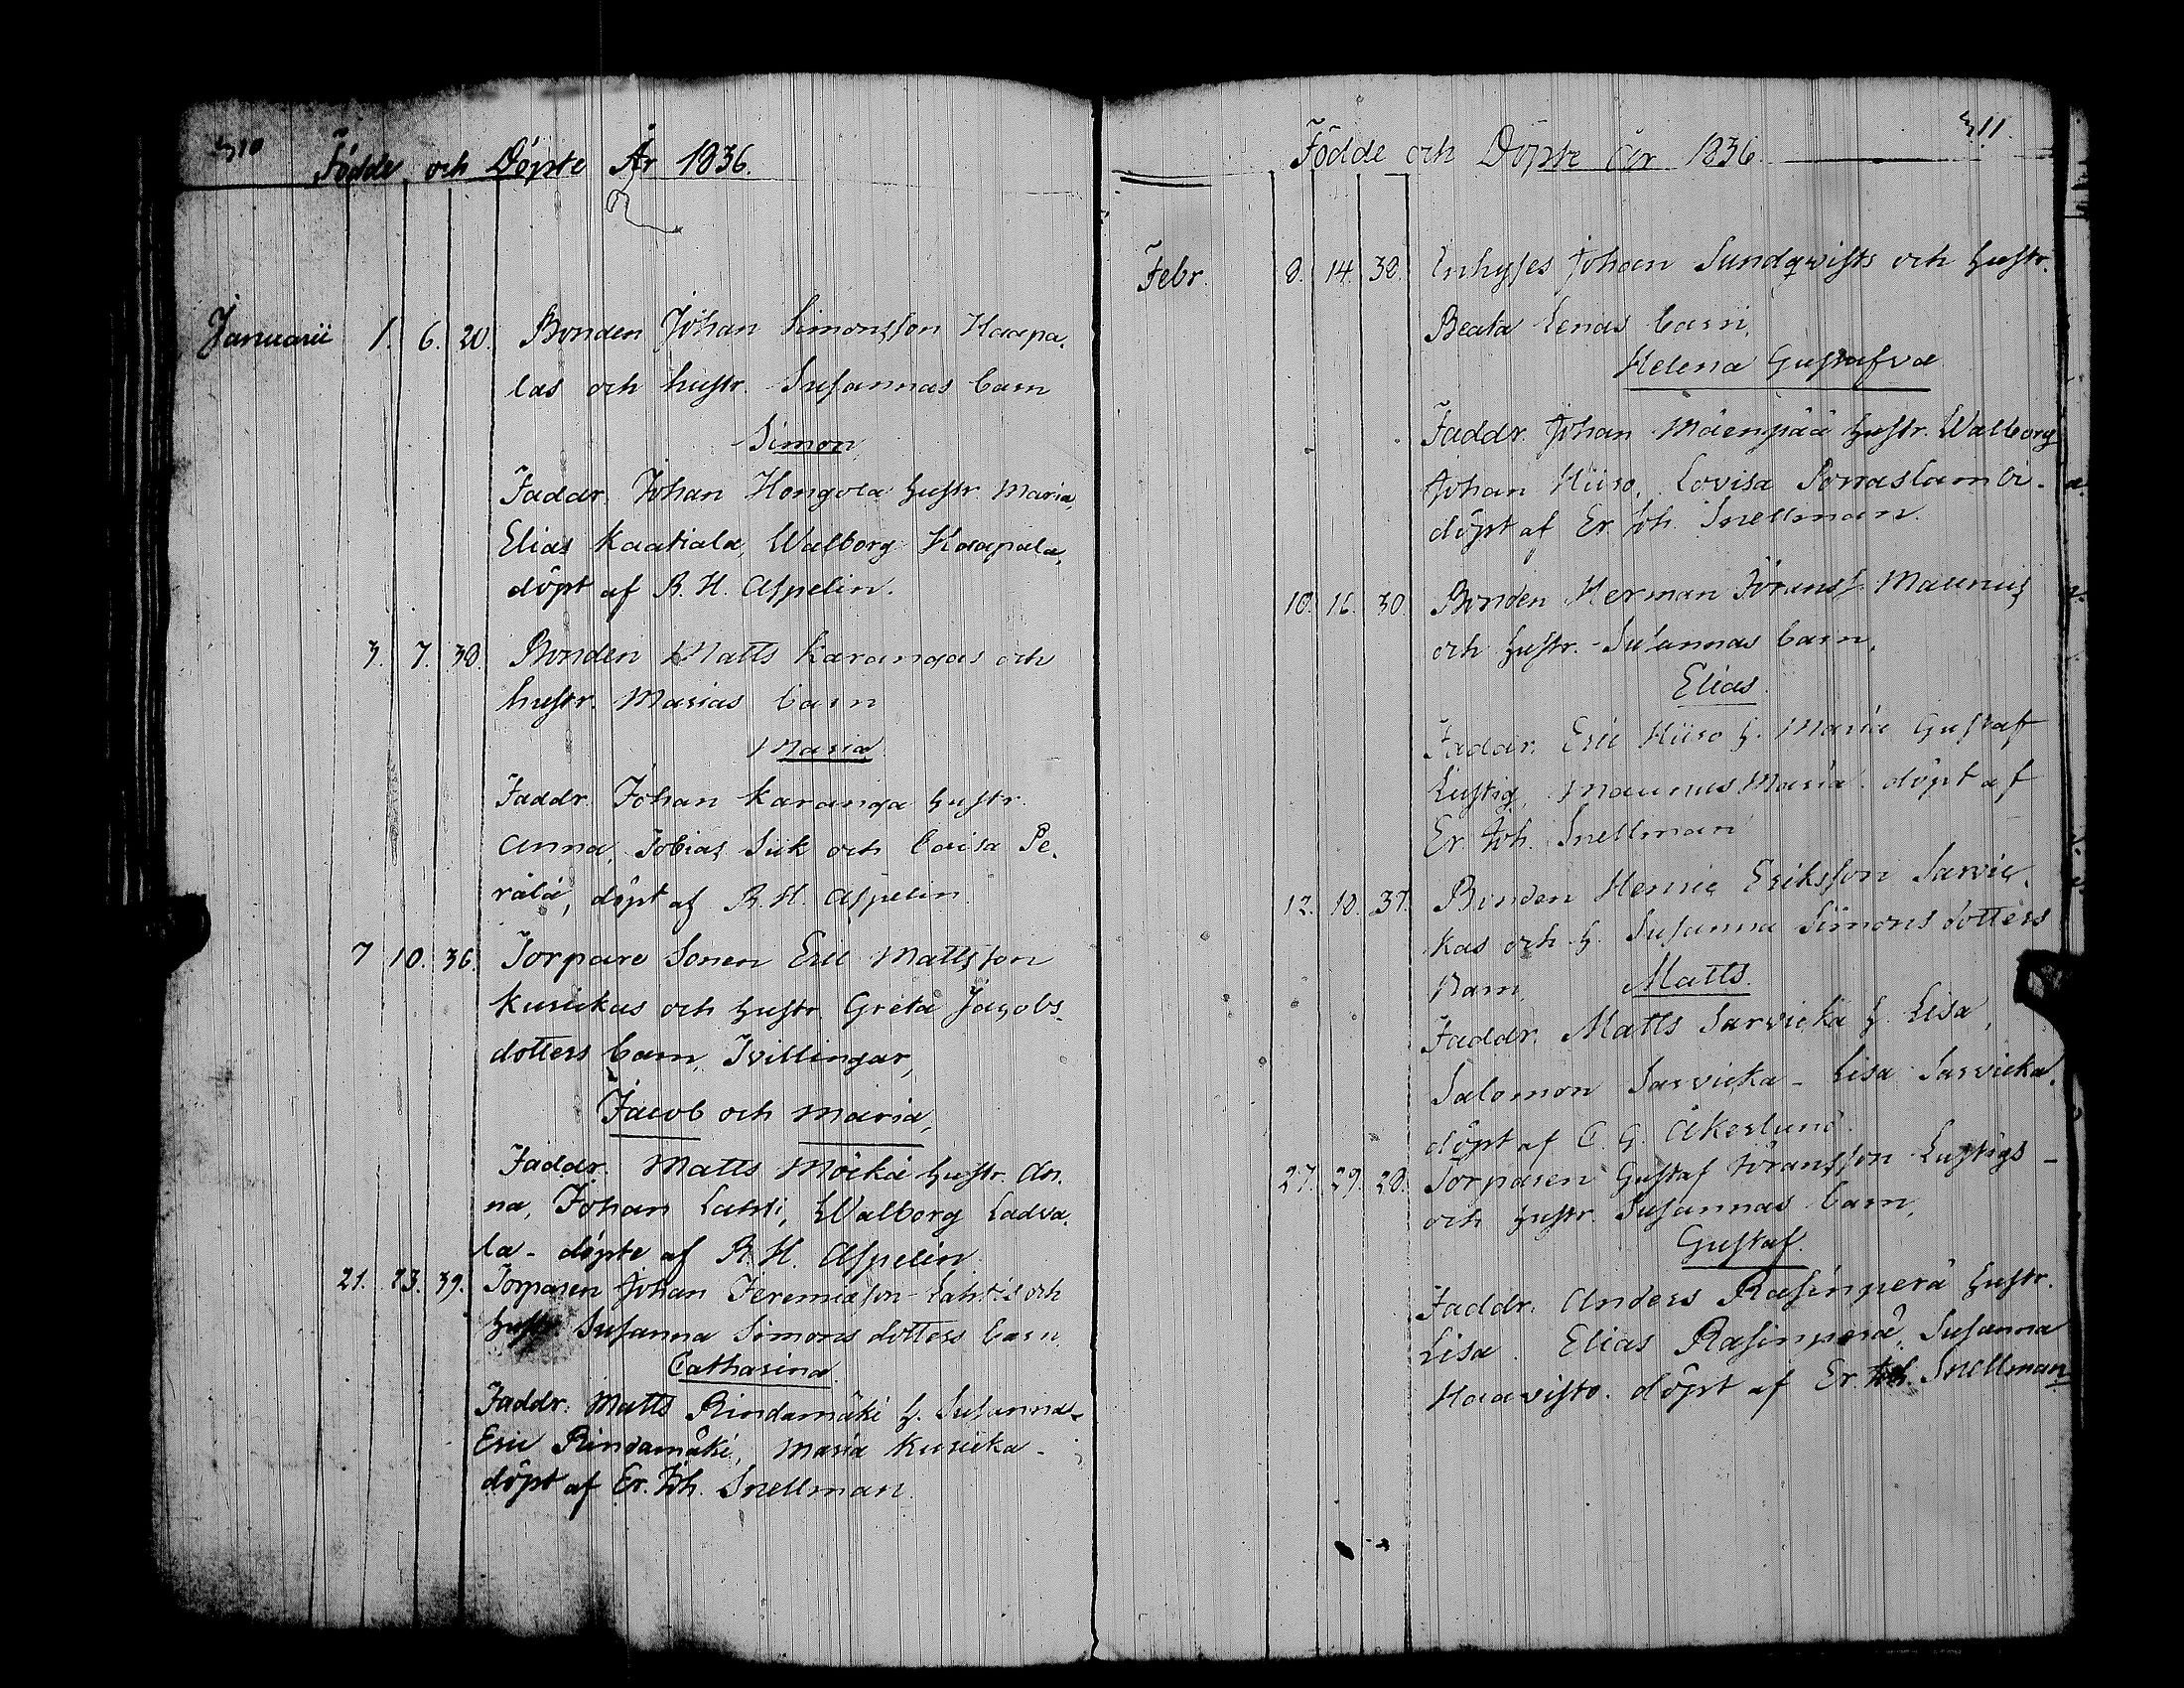 310
Födde och Döpte År 1836.
Januarii 1. 6. 20. Bonden Johan Simonsson Haapa-
las och hustr. Susannas barn
Simon
Faddr. Johan Hongola hustr. Maria,
Elias Kaatiala, Walborg Haapala,
döpt af R. H. Aspelin.
3. 7. 30. Bonden Matts Karangas och
hustr. Marias barn
Maria
Faddr. Johan Karanga hustr.
Anna, Tobias Siik och Lovisa Pe-
rälä, döpt af R. H. Aspelin
7 10. 36. Torpare Sonen Eric Mattsson
Kuriekas och hustr. Greta Jacobs-
dotters barn, Tvillingar,
Jacob och Maria,
Faddr. Matts Möckä hustr. An-
na, Johan Lahti, Walborg Ladva-
la - döpte af R. H. Aspelin
21. 23. 39. Torparen Johan Jeremiason Lahtis och
hustr Susanna Simons dotters barn
Catharina
Faddr. Matts Rindamäki h. Susanna-
Eric Rindamäki, Maria Kurieka -
döpt af Er. Joh. Snellman
311.
Födde och Döpte År 1836
Febr. 8. 14. 38. Inhyses Johan Sundqvists och hustr.
Beata Lenas barn,
Helena Gustafva
Faddr. Johan Mäenpää hustr. Walborg
Johan Hiiro, Lovisa Porraslambi -
döpt af Er Joh. Snellman.
10. 16. 30. Bonden Herman Göranss. Maunus
och hustr. Susannas barn,
Elias
Faddr. Eric Hiiro h. Maria Gustaf
Lustig, Maunus Maria döpt af
Er Joh. Snellman
12. 18. 37. Bonden Henric Eriksson Sarvie-
kas och h. Susanna Simons dotters
Barn, Matts.
Faddr. Matts Sarvicka h. Lisa,
Salomon Sarvicka - Lisa Sarvicka,
döpt af C. G. Åkerlund.
27. 29. 28. Torparen Gustaf Göransson Lustigs -
och hustr. Susannas barn,
Gustaf.
Faddr. Anders Rasinperä hustr.
Lisa. Elias Rasinperä, Susanna
Haavisto. döpt af Er. Joh. Snellman